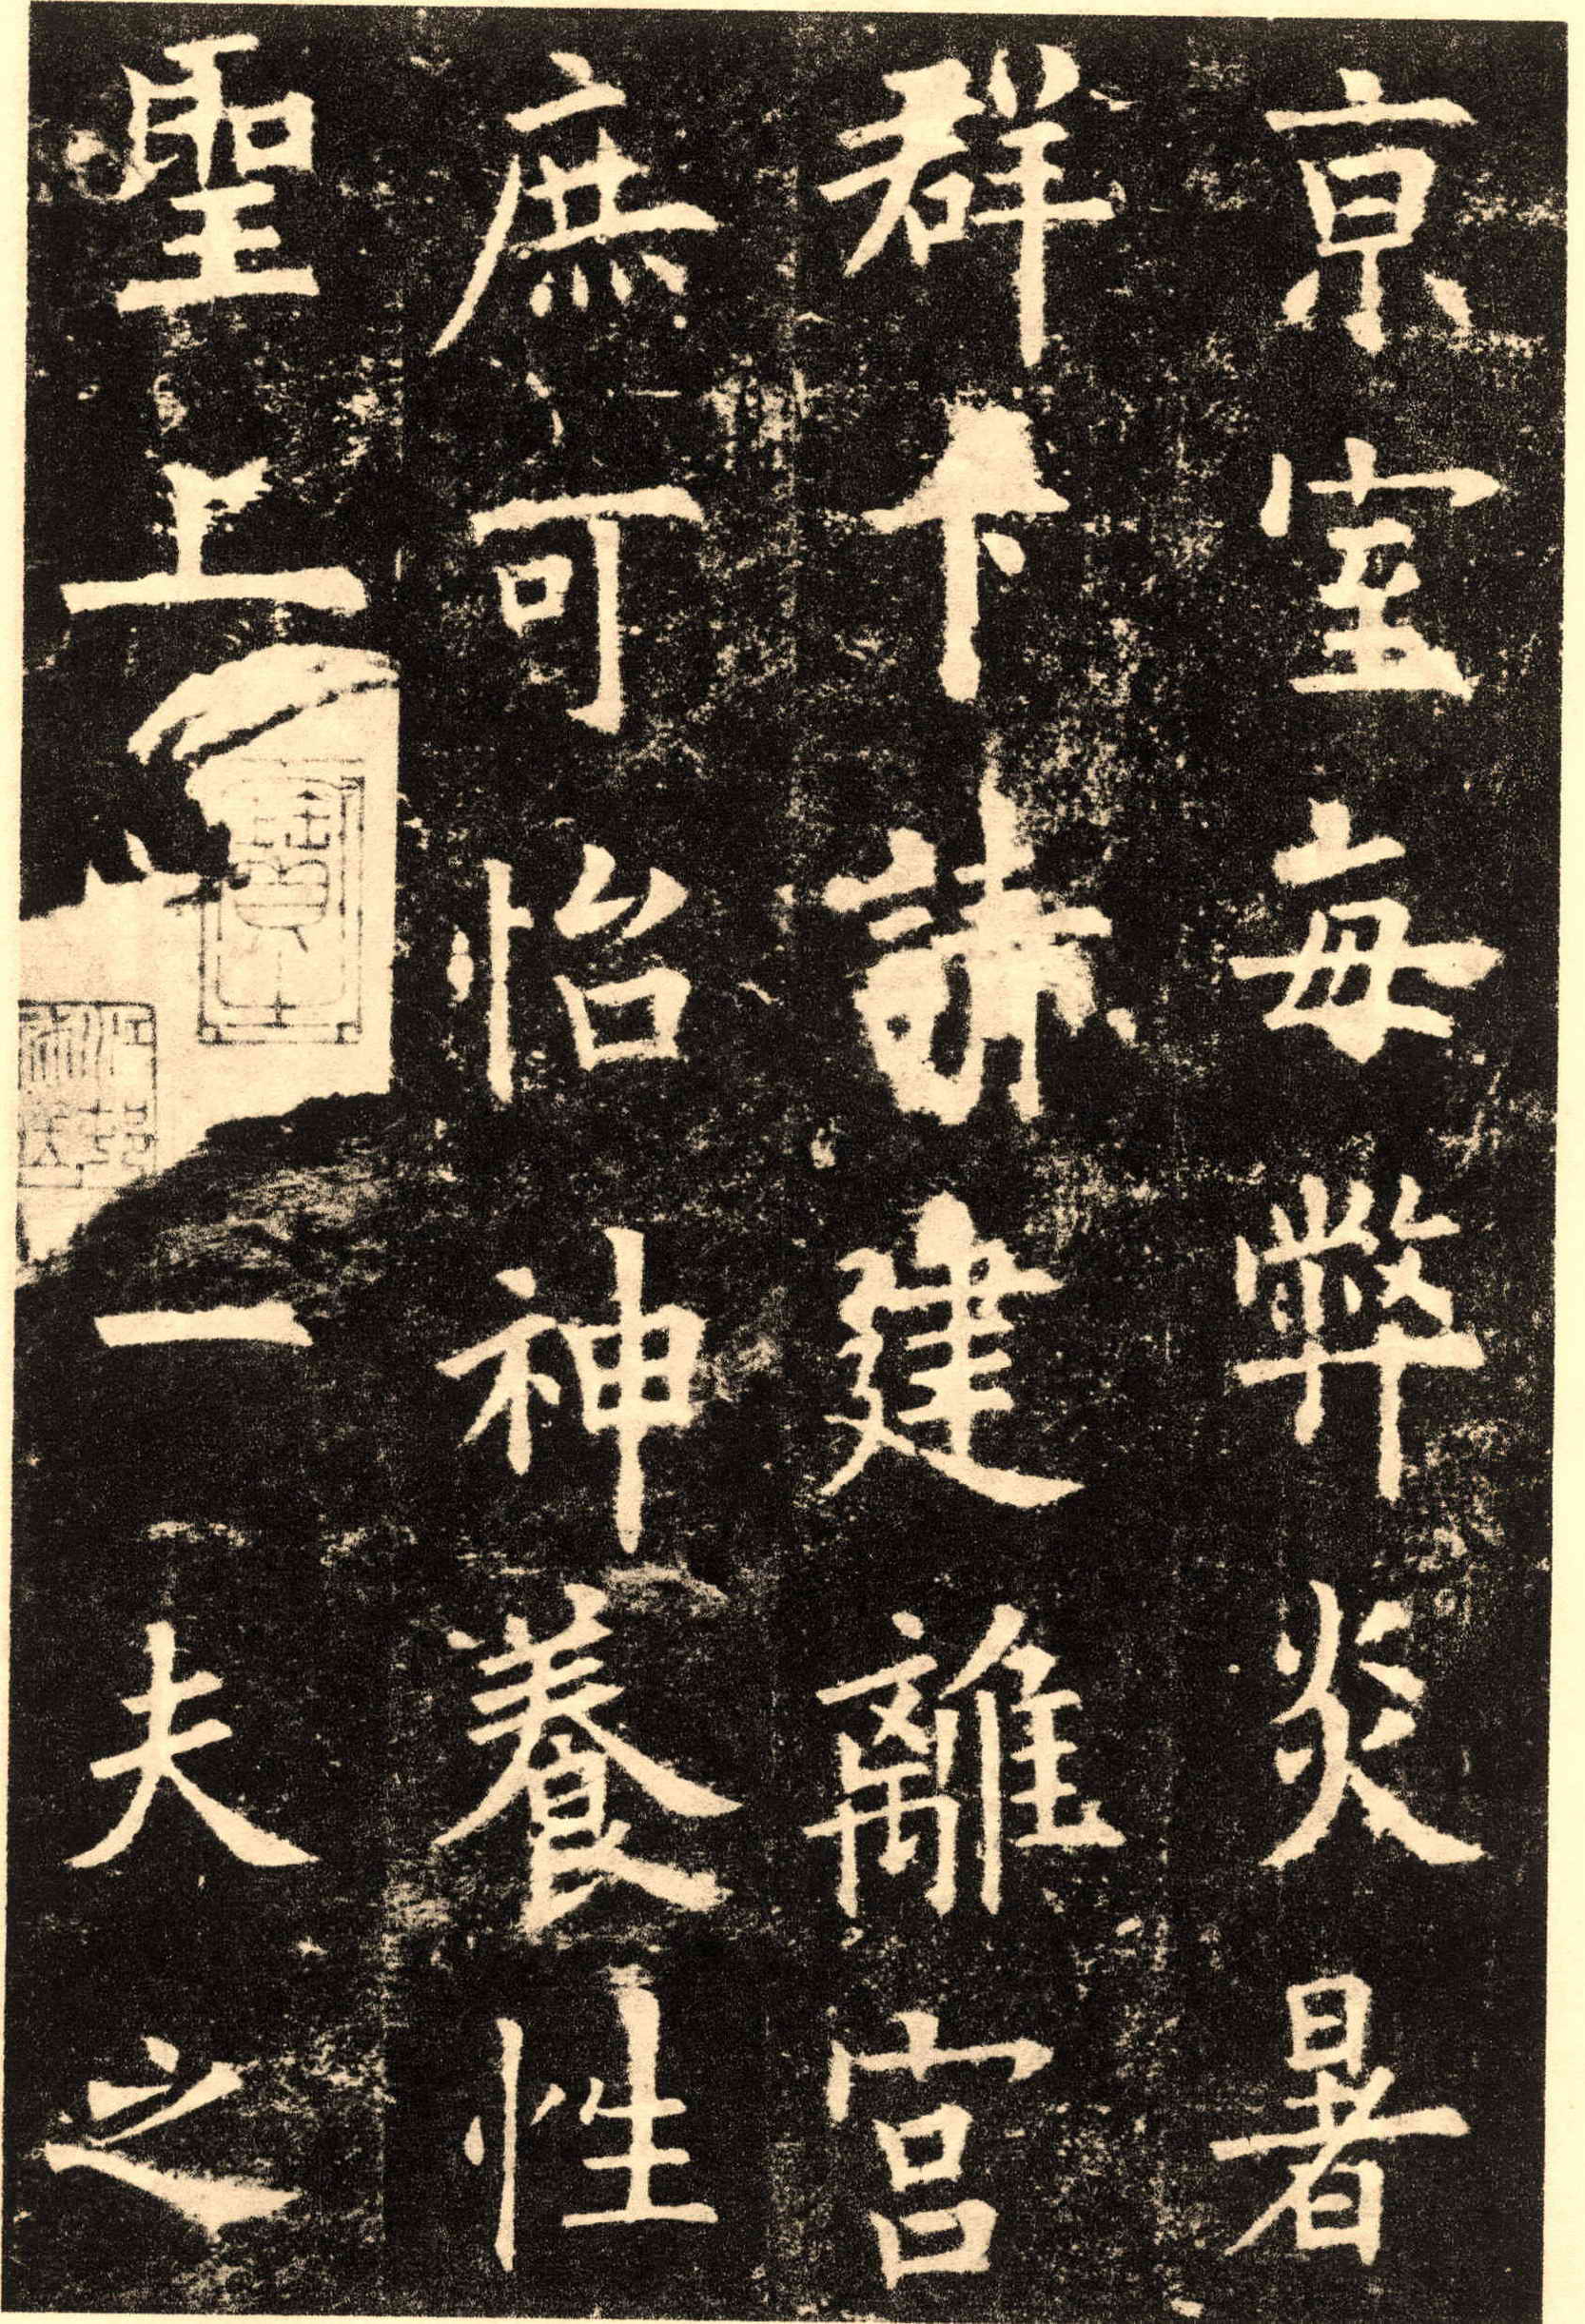 京室每弊炎暑
群下請建離宮
庶可怡神養性
聖上一夫之